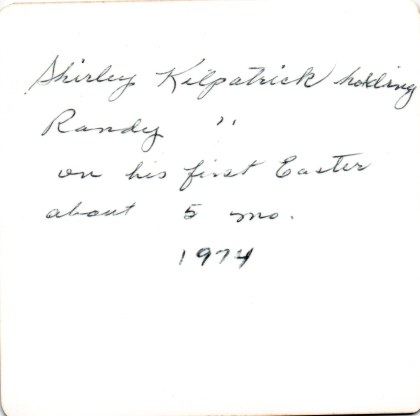 Shirley Kilpatrick holding
Randy "
on his first Easter
about 5 mo.
1974